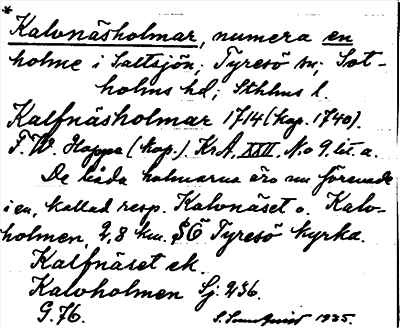 *
Kalvnäsholmar, numera en
holme i Saltsjön; Tyresö sn; Sot-
holms hd; Sthlms l.
Kalfnäsholmar 1714 (kop. 1740).
F. W. Hoppa (kop.) KrA, XXII, No 9, lit. a.
De båda holmarna äro nu förenade
i en, kallad resp. Kalvnäset o. Kalv-
holmen, 2,8 km. SÖ Tyresö kyrka.
Kalfnäset ek.
Kalvholmen Sj. 236.
G. 76.
S. Sundquist 1935.